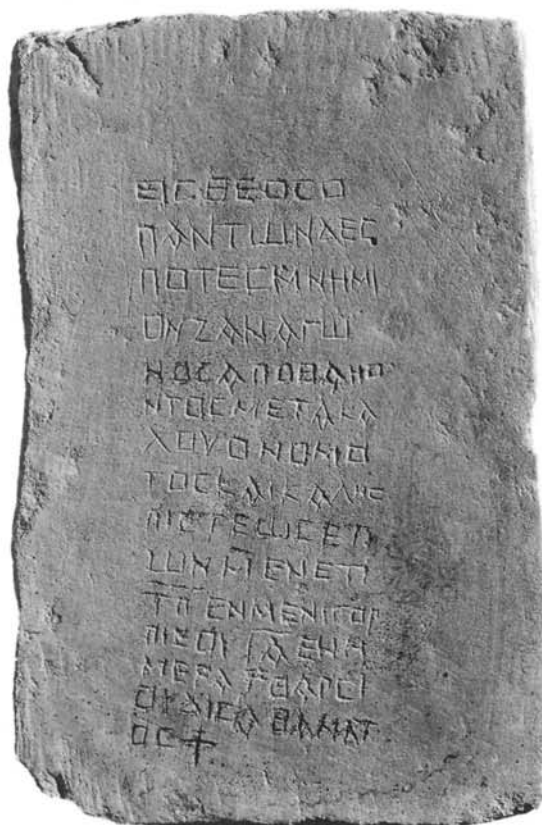 ΕΙϹΘΕΟϹΟ
ΠΑΝΤΩΝΔΕϹ
ΠΟΤΕϹΜΝΗΜΙ
ΟΝΖΑΝΑΓΩ
ΝΟϹΑΠΟΘΑΝΟ
ΝΤΟϹΜΕΤΑΚΑ
ΛΟΥΟΝΟΜΟ
ΤΟϹΚΑΙΚΑΛΗϹ
ΠΙϹΤΕΩϹΕΤΙ
ΩΝΜΕΝΕΤΙ
ΤΠΕΝΜΕΝΙΓΟΡ
ΠΙΕΟΥΓΑΕΝΗ
ΜΕΡΑϜΘΑΡϹΙ
ΟΥΔΙϹΑΘΑΝΑΤ
ΟϹ✝